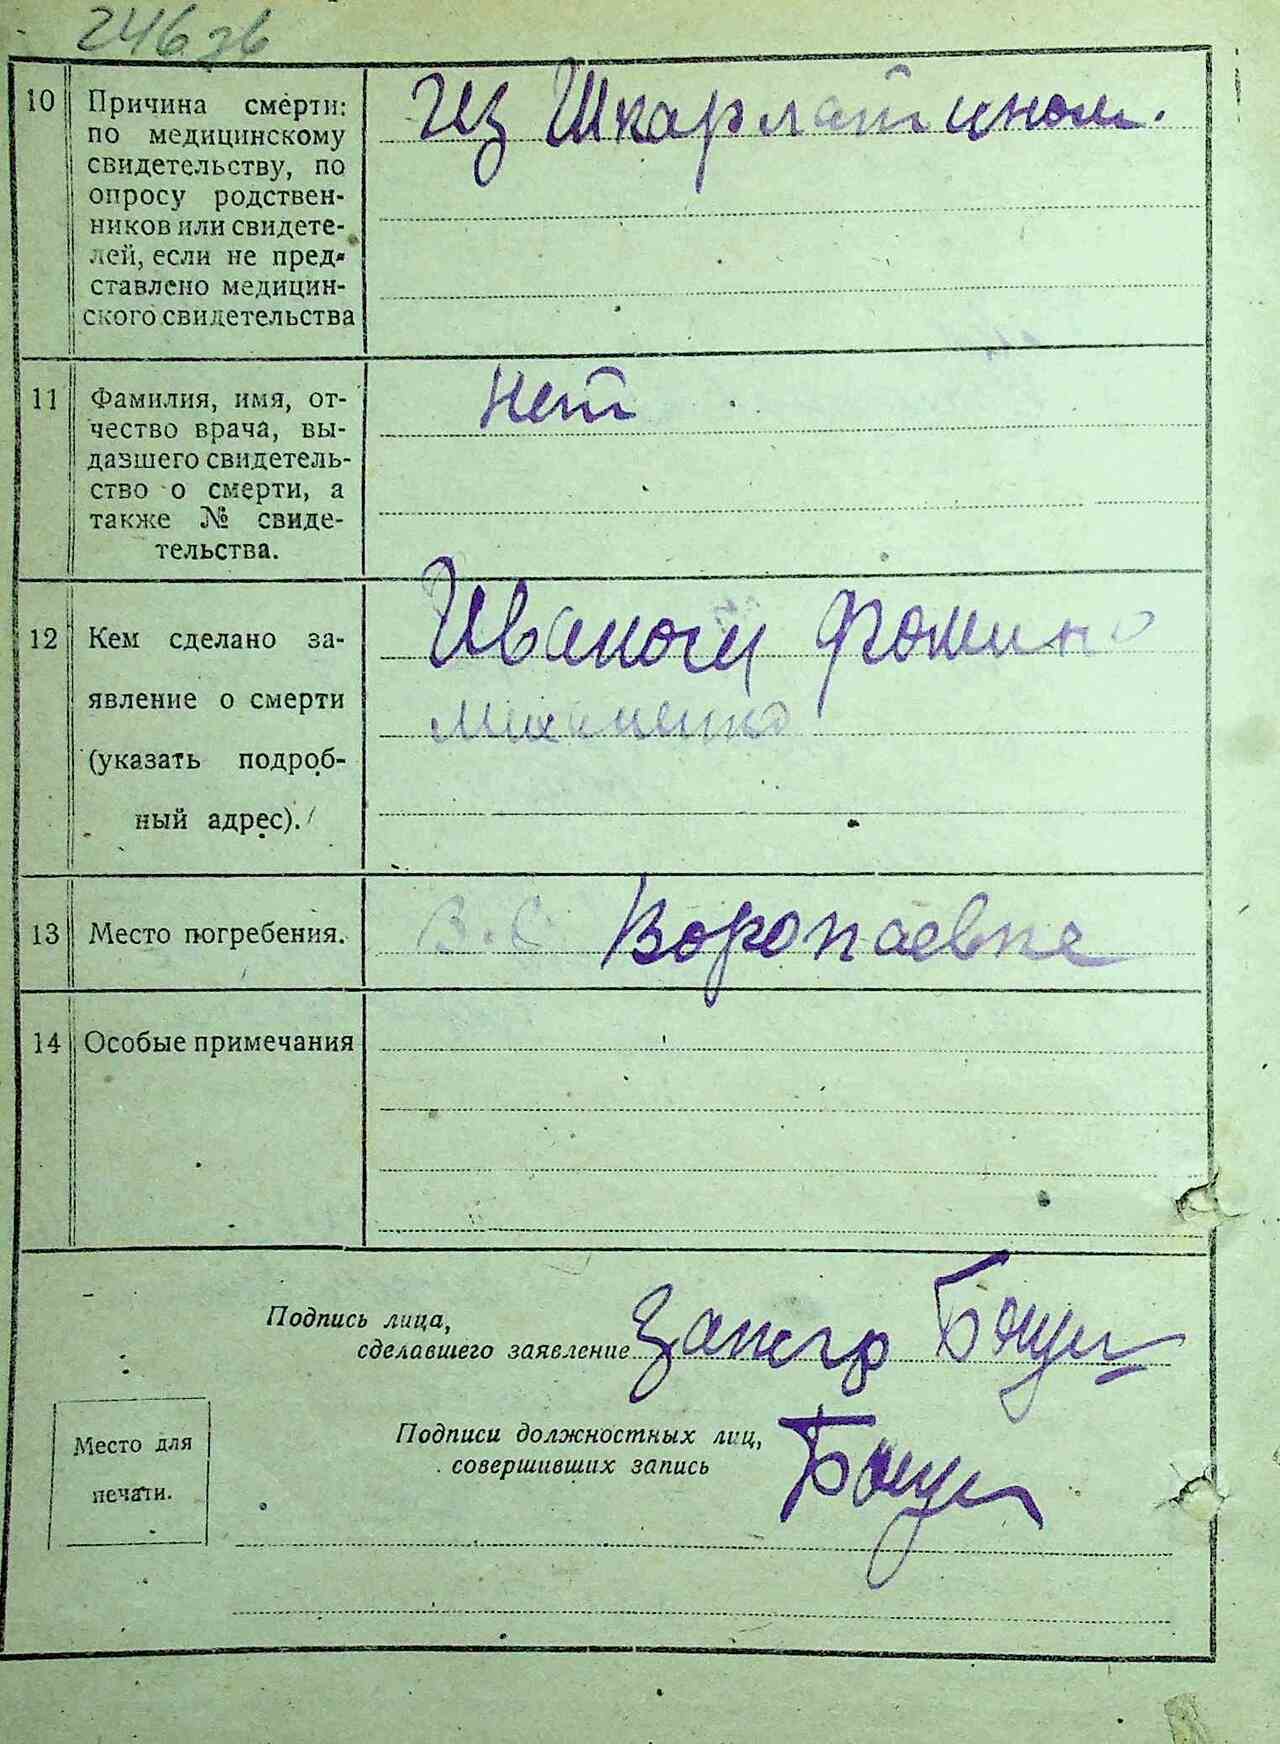 246 зв
10 Причина смерти:
по медицинскому
свидетельству, по
опросу родствен-
ников или свидете-
лей, если не пред-
ставлено медицин-
ского свидетельства
Из Шкарлатином.
11 Фамилия, имя, от-
чество врача, вы-
давшего свидетель-
ство о смерти, а
также № свиде-
тельства.
нет
12 Кем сделано за-
явление о смерти
(указать подроб-
ный адрес).
Фомино
13 Место погребения.
В. С Воропаевке
14 Особые примечания
Подпись лица,
сделавшего заявление
Подписи должностных лиц,
совершивших запись
Место для
печати.